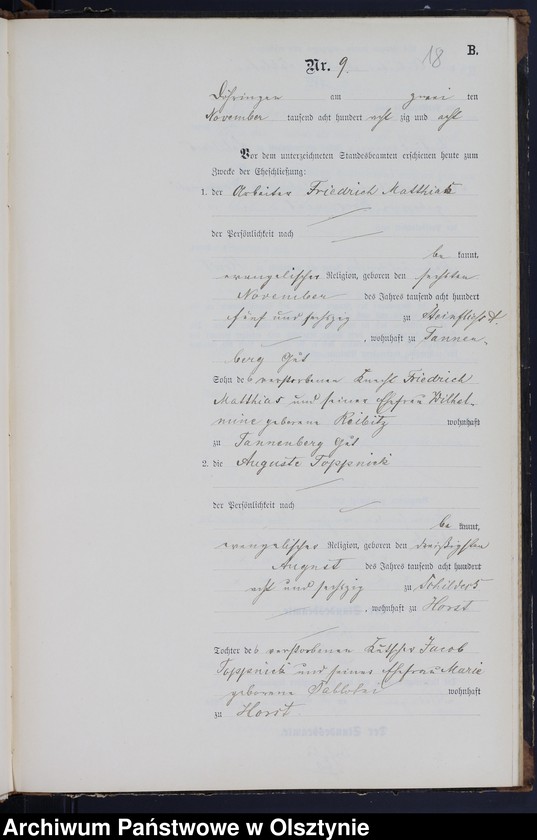 18 B.
Nr. 9.
Döhringen am zwei ten
November tausend acht hundert acht zig und acht
Vor dem unterzeichneten Standesbeamten erschienen heute zum
Zwecke der Eheschließung:
1. der Arbeiter Friedrich Matthias
der Persönlichkeit nach
be kannt,
evangelischer Religion, geboren den sechsten
November des Jahres tausend acht hundert
fünf und sechszig zu
, wohnhaft zu Tannen-
berg Gut
Sohn des verstorbenen Knecht Friedrich
Matthias und seiner Ehefrau Wilhel-
mine geborene Reibitz wohnhaft
zu Tannenberg Gut
2. die Auguste Toppnick
der Persönlichkeit nach
be kannt,
evangelischer Religion, geboren den dreißigsten
August des Jahres tausend acht hundert
acht und sechszig zu Schildeck
, wohnhaft zu Horst
Tochter des verstorbenen Kutscher Jacob
Toppnick und seiner Ehefrau Marie
geborene wohnhaft
zu Horst
Archiwum Państwowe w Olsztynie